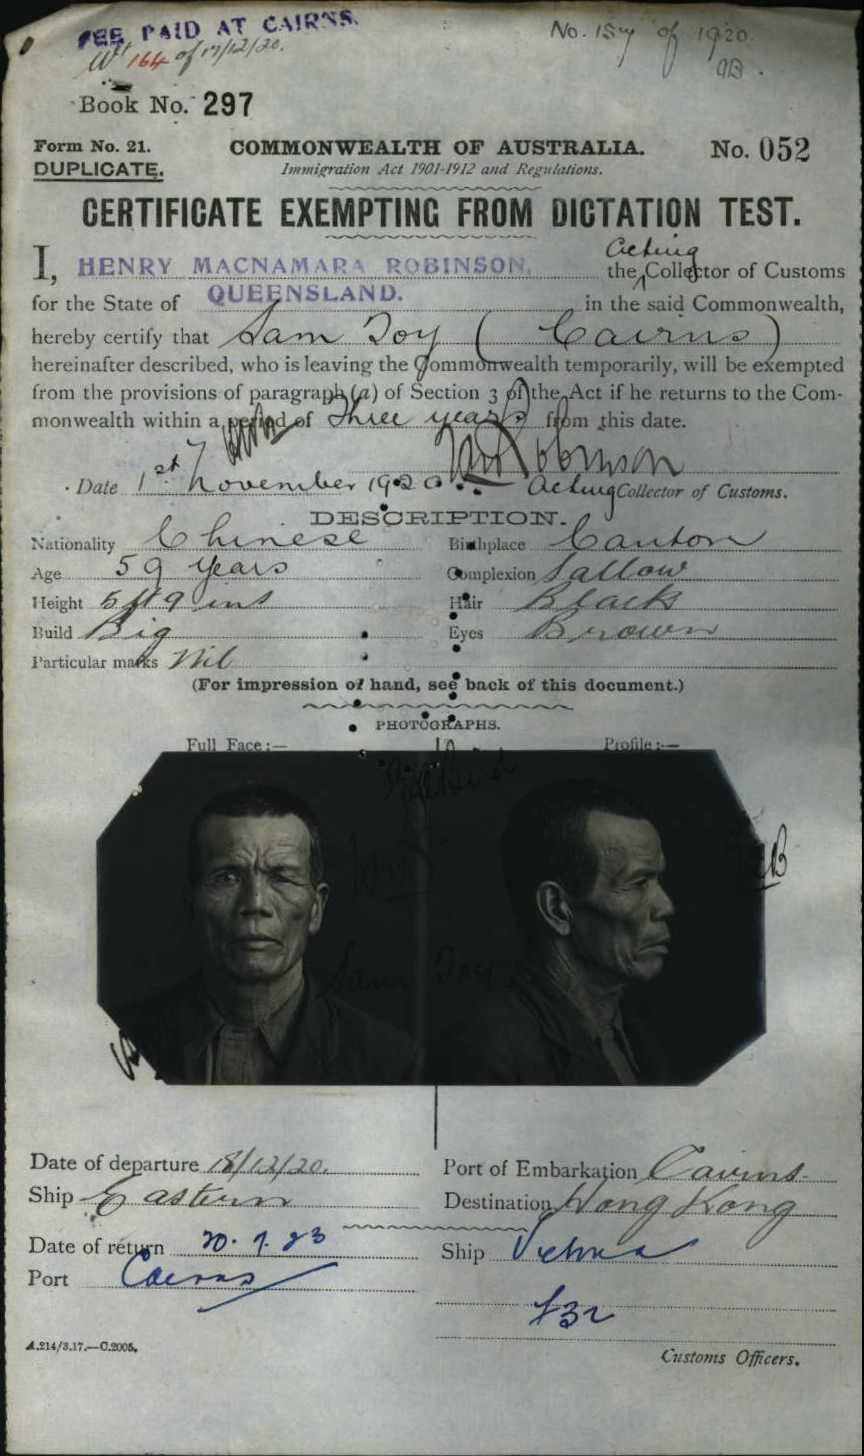 FEE PAID AT CAIRNS.
164 of 17/12/20.
No. 157 of 1920.
Book No. 297
Form No. 21.
DUPLICATE.
COMMONWEALTH OF AUSTRALIA.
No. 052
Immigration Act 1901-1912 and Regulations.
CERTIFICATE EXEMPTING FROM DICTATION TEST.
I, HENRY MACNAMARA ROBINSON, the Acting Collector of Customs
for the State of QUEENSLAND. in the said Commonwealth,
hereby certify that Sam Toy (Cairns)
hereinafter described, who is leaving the Commonwealth temporarily, will be exempted
from the provisions of paragraph (a) of Section 3 of the Act if he returns to the Com-
monwealth within a period of Three years from this date.
Robinson
Date 1st November 1920. Acting Collector of Customs.
DESCRIPTION.
Nationality Chinese Birthplace Canton
Age 59 years Complexion Sallow
Height 5 ft 9 ins Hair Black
Build Big Eyes Brown
Particular marks Nil
(For impression of hand, see back of this document.)
PHOTOGRAPHS.
Full Face:— Profile:—
Sam Toy
Date of departure 18/12/20. Port of Embarkation Cairns.
Ship Eastern Destination Hong Kong
Date of return 20.7.23 Ship
Port Cairns
A.214/3.17.—C.2005.
Customs Officers.